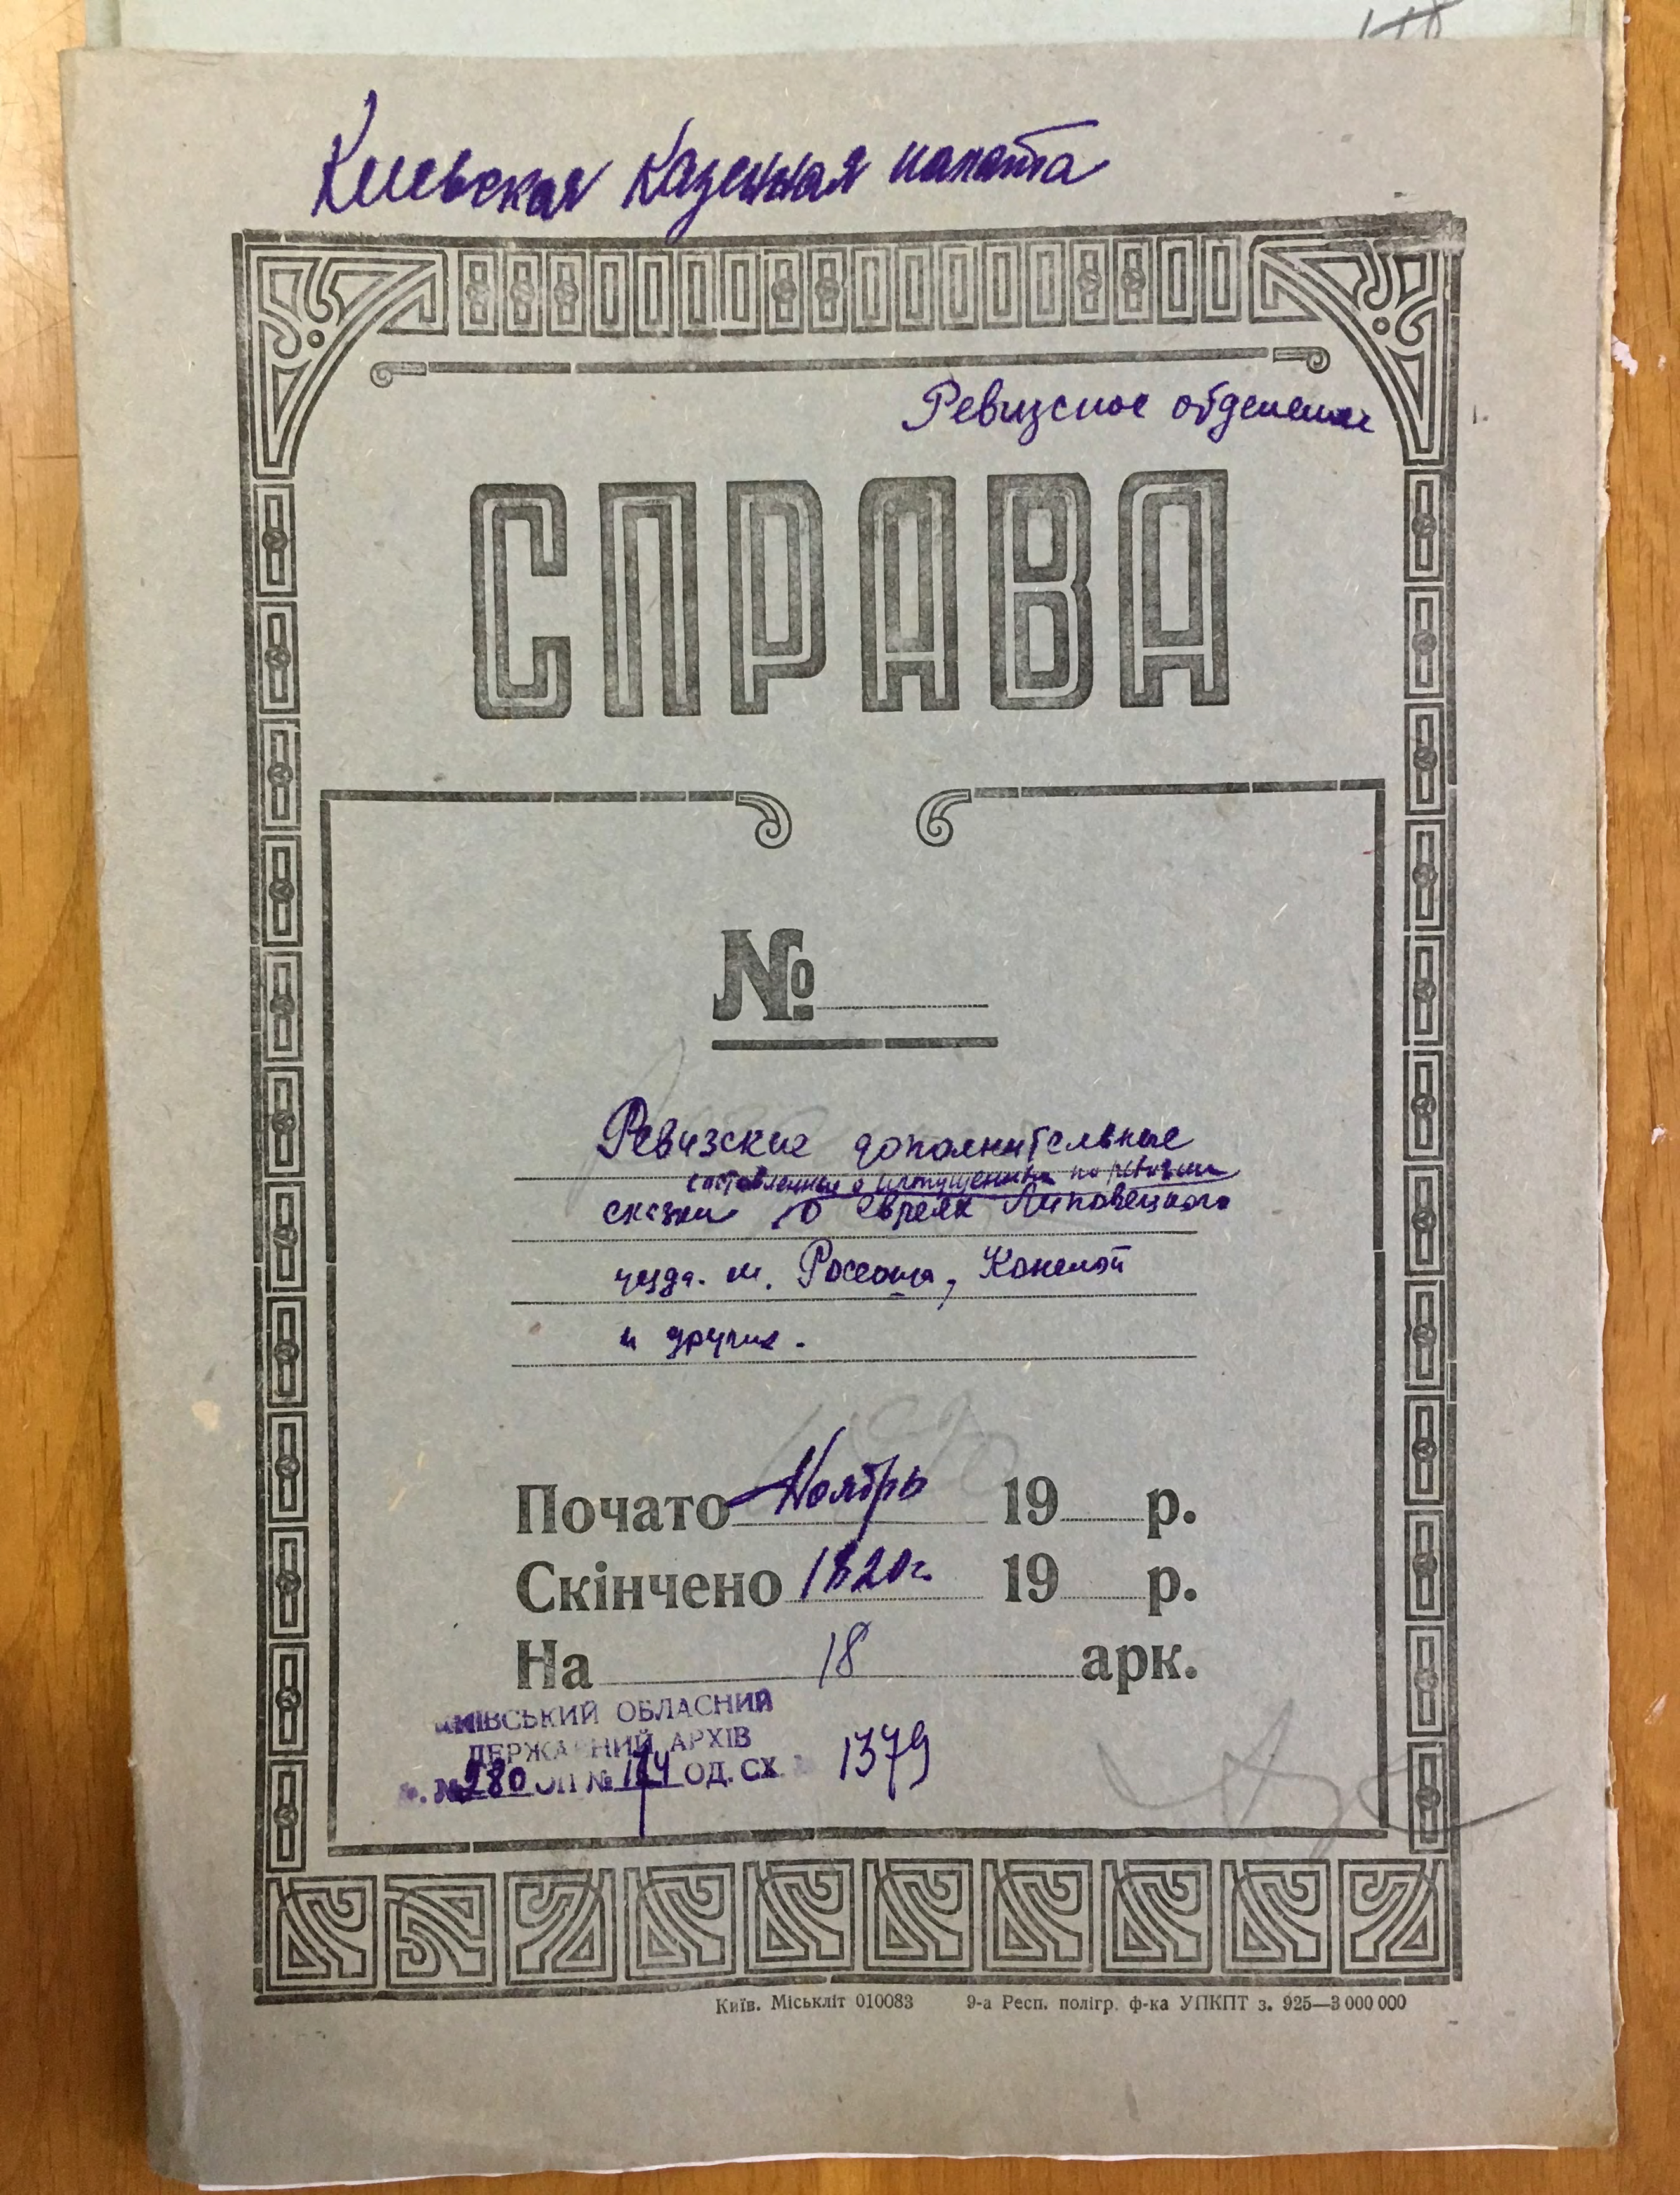 Киевская Казенная палата
Ревизское отделение
СПРАВА
№
Ревизские дополнительные
составленные о пропущенных по ревизии
сказки о евреях Липовецкого
уезда м. Россоша, Конелой
и других.
Почато Ноябрь 19 р.
Скінчено 1820г. 19 р.
На 18 арк.
КИЇВСЬКИЙ ОБЛАСНИЙ
ДЕРЖАВНИЙ АРХІВ
Ф. №280 ОП № 174 ОД. СХ. 1379
Київ. Міськліт 010083 9-а Респ. полігр. ф-ка УПКПТ з. 925—3 000 000